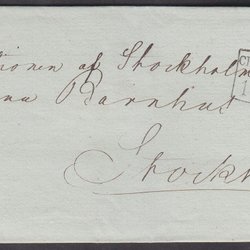 tionen af Stockholm
na Barnhus
Stockh